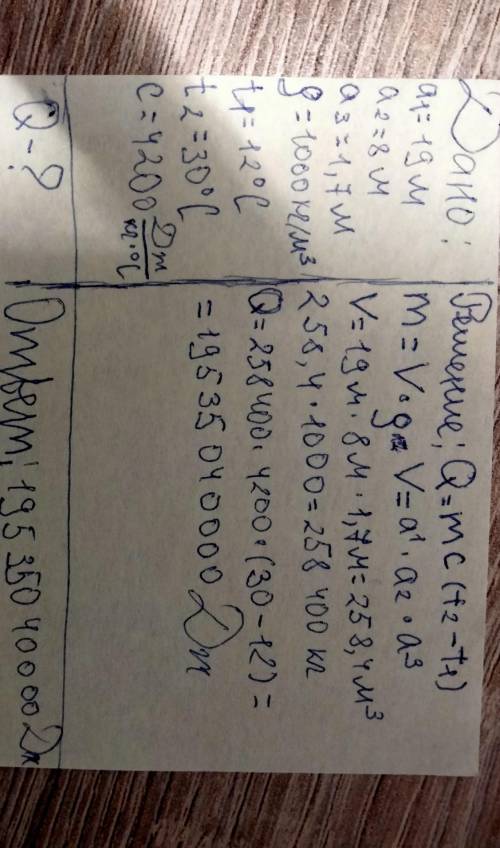 Дано:
a1=19м
a2=8м
a3=1,7м
g=1000кг/м³
t1=12°C
t2=30°C
c=4200 Дж/кг·°C
Q-?
Решение; Q=mc(t2-t1)
m=V·g V=a¹·a2·a³
V=19м·8м·1,7м=258,4м³
258,4·1000=258400кг
Q=258400·4200·(30-12)=
=19535040000Дж
Ответ; 19535040000Дж